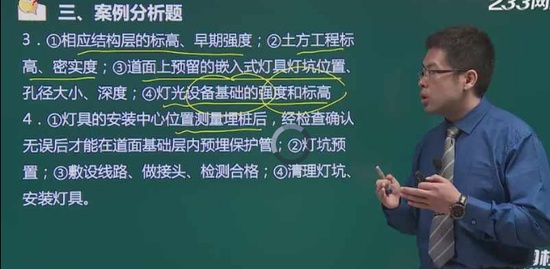 233网
三、案例分析题
3．①相应结构层的标高、早期强度；②土方工程标
高、密实度；③道面上预留的嵌入式灯具灯坑位置、
孔径大小、深度；④灯光设备基础的强度和标高
4．①灯具的安装中心位置测量埋桩后，经检查确认
无误后才能在道面基础层内预埋保护管；②灯坑预
置；③敷设线路、做接头、检测合格；④清理灯坑、
安装灯具。